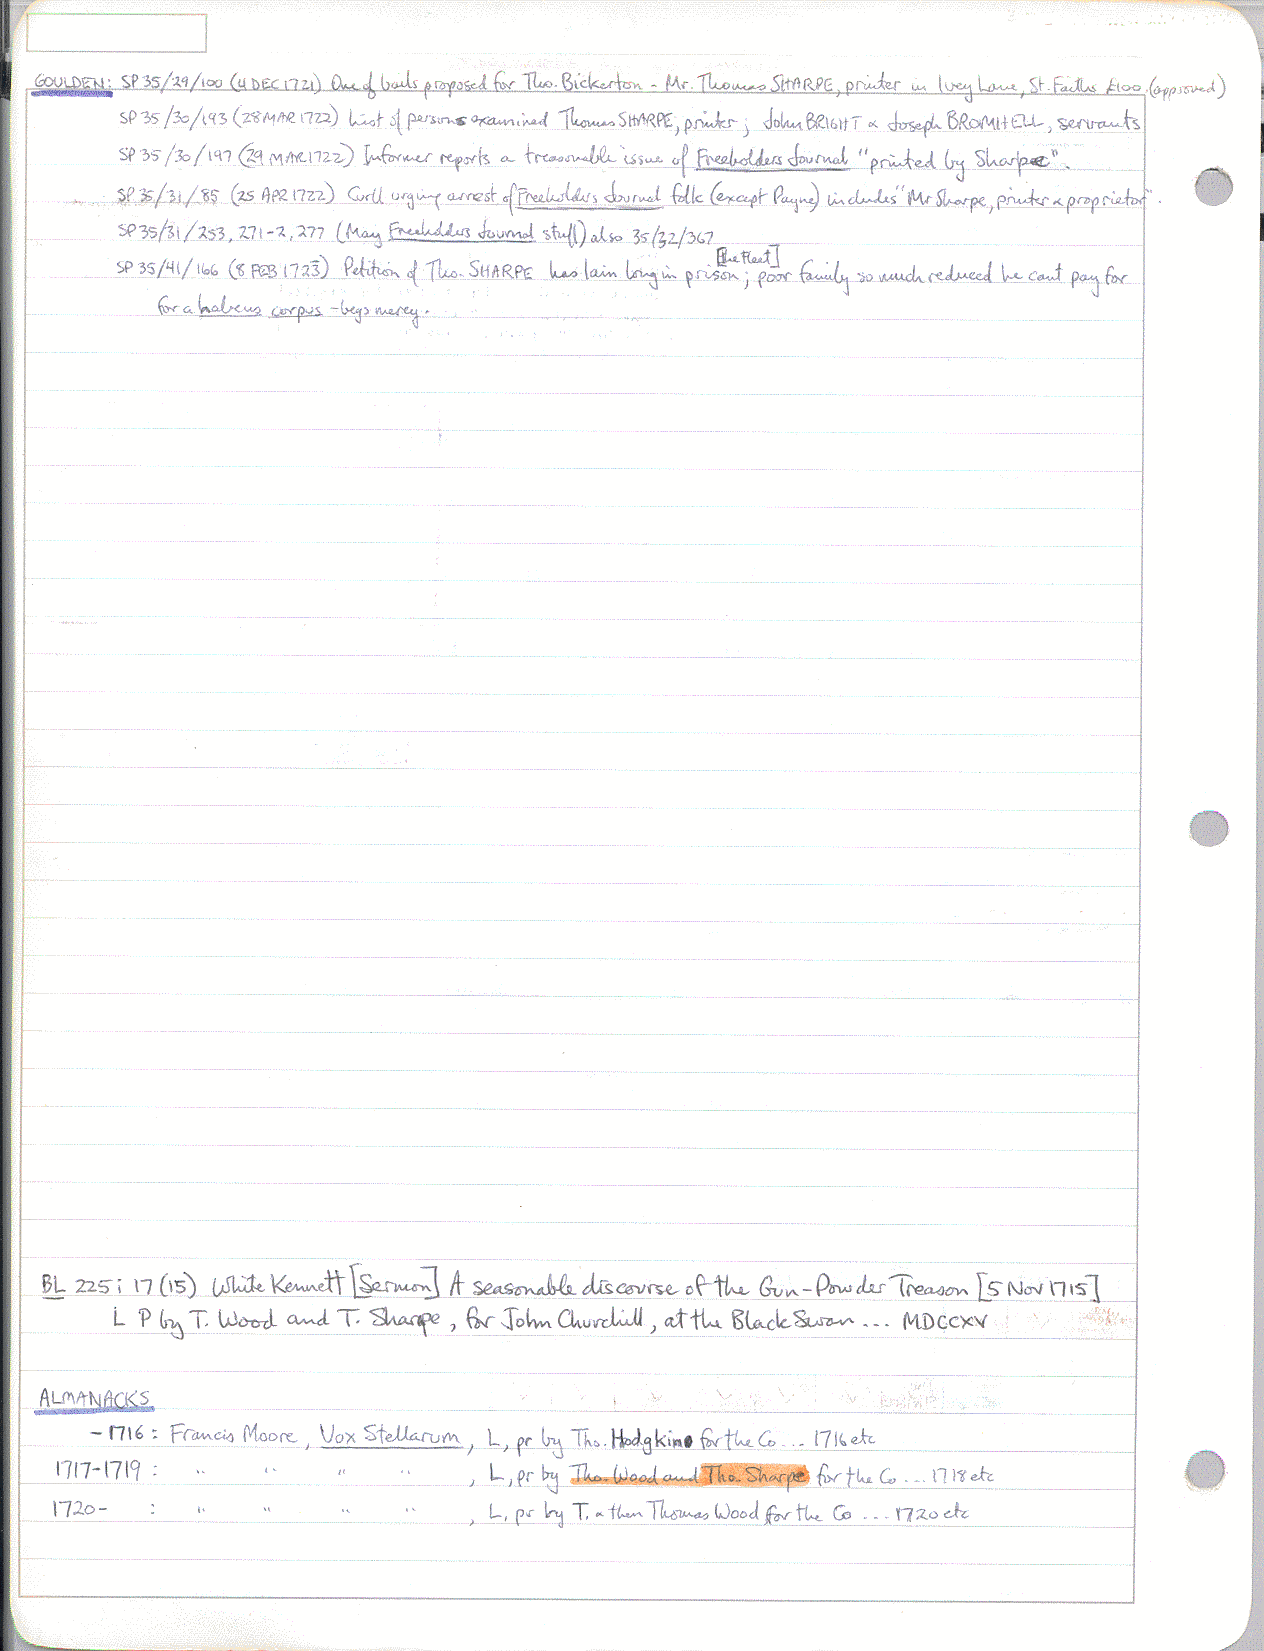 GOULDEN: SP 35/29/100 (4 DEC 1721) One of bails proposed for Tho. Bickerton - Mr. Thomas SHARPE, printer in Ivey Lane, St. Faiths £100. (approved)
SP 35/30/193 (28 MAR 1722) List of persons examined Thomas SHARPE, printer; John BRIGHT & Joseph BROMHELL, servants
SP 35/30/197 (29 MAR 1722) Informer reports a treasonable issue of Freeholders Journal "printed by Sharpe".
SP 35/31/85 (25 APR 1722) Curll urging arrest of Freeholders Journal folk (except Payne) includes "Mr Sharpe, printer & proprietor".
SP 35/31/253, 271-2, 277 (May Freeholders Journal stuff) also 35/32/367
[the Fleet]
SP 35/41/166 (8 FEB 1723) Petition of Tho. SHARPE has lain long in prison; poor family so much reduced he cant pay for
for a habeus corpus - begs mercy.
BL 225 i 17 (15) White Kennett [Sermon] A seasonable discourse of the Gun-Powder Treason [5 Nov 1715]
L P by T. Wood and T. Sharpe, for John Churchill, at the Black Swan ... MDCCXV
ALMANACKS
- 1716: Francis Moore, Vox Stellarum, L, pr by Tho. Hodgkin for the Co ... 1716 etc
1717-1719: " " " " , L, pr by Tho. Wood and Tho. Sharpe for the Co ... 1718 etc
1720- : " " " " , L, pr by T. & then Thomas Wood for the Co ... 1720 etc